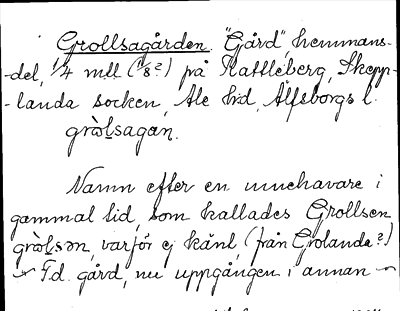 Grollsagården. "Gård", hemmans-
-del, 1/4 mtl (1/8?) på Kattleberg, Skepp-
-landa socken, Ale hd, Älfsborgs l.
gròlsagan.
Namn efter en innehavare i
gammal tid, som kallades Grollsen
gròlsən, varför ej känt, (från Grolanda?)
~ F.d. gård, nu uppgången i annan ~